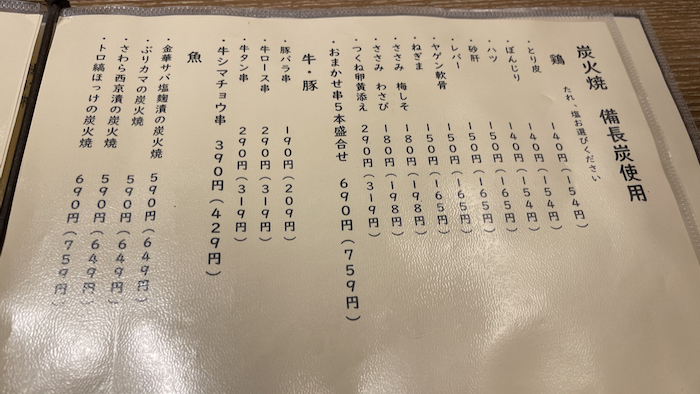 炭火焼 備長炭使用
鶏 たれ、塩お選びください
・とり皮 140円(154円)
・ぼんじり 140円(154円)
・ハツ 140円(154円)
・砂肝 150円(165円)
・レバー 150円(165円)
・ヤゲン軟骨 150円(165円)
・ねぎま 150円(165円)
・ささみ 梅しそ 180円(198円)
・ささみ わさび 180円(198円)
・つくね卵黄添え 290円(319円)
・おまかせ串5本盛合せ 690円(759円)
牛・豚
・豚バラ串 190円(209円)
・牛ロース串 290円(319円)
・牛タン串 290円(319円)
・牛シマチョウ串 390円(429円)
魚
・金華サバ塩麹漬の炭火焼 590円(649円)
・ぶりカマの炭火焼 590円(649円)
・さわら西京漬の炭火焼 590円(649円)
・トロ縞ほっけの炭火焼 690円(759円)